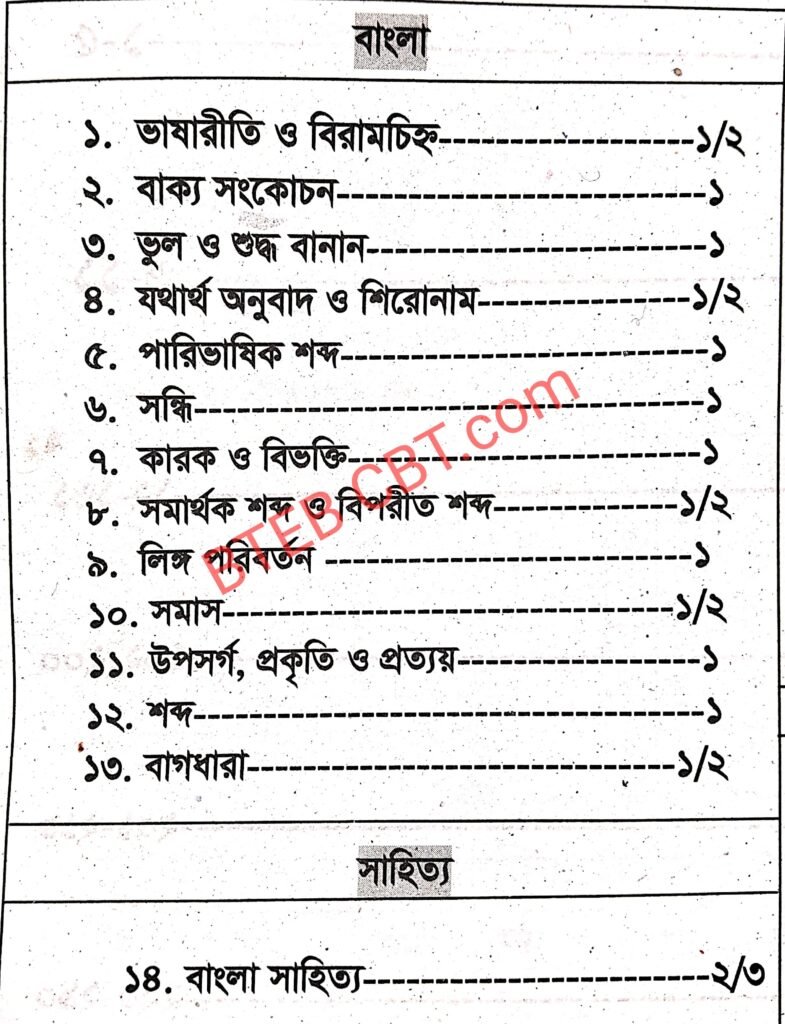 বাংলা
১. ভাষারীতি ও বিরামচিহ্ন-----------------------১/২
২. বাক্য সংকোচন---------------------------------১
৩. ভুল ও শুদ্ধ বানান------------------------------১
৪. যথার্থ অনুবাদ ও শিরোনাম-------------------১/২
৫. পারিভাষিক শব্দ--------------------------------১
৬. সন্ধি---------------------------------------------১
৭. কারক ও বিভক্তি-------------------------------১
৮. সমার্থক শব্দ ও বিপরীত শব্দ-----------------১/২
৯. লিঙ্গ পরিবর্তন --------------------------------১
১০. সমাস----------------------------------------১/২
১১. উপসর্গ, প্রকৃতি ও প্রত্যয়----------------------১
১২. শব্দ---------------------------------------------১
১৩. বাগধারা--------------------------------------১/২
সাহিত্য
১৪. বাংলা সাহিত্য-------------------------------২/৩
BTEB CBT.com